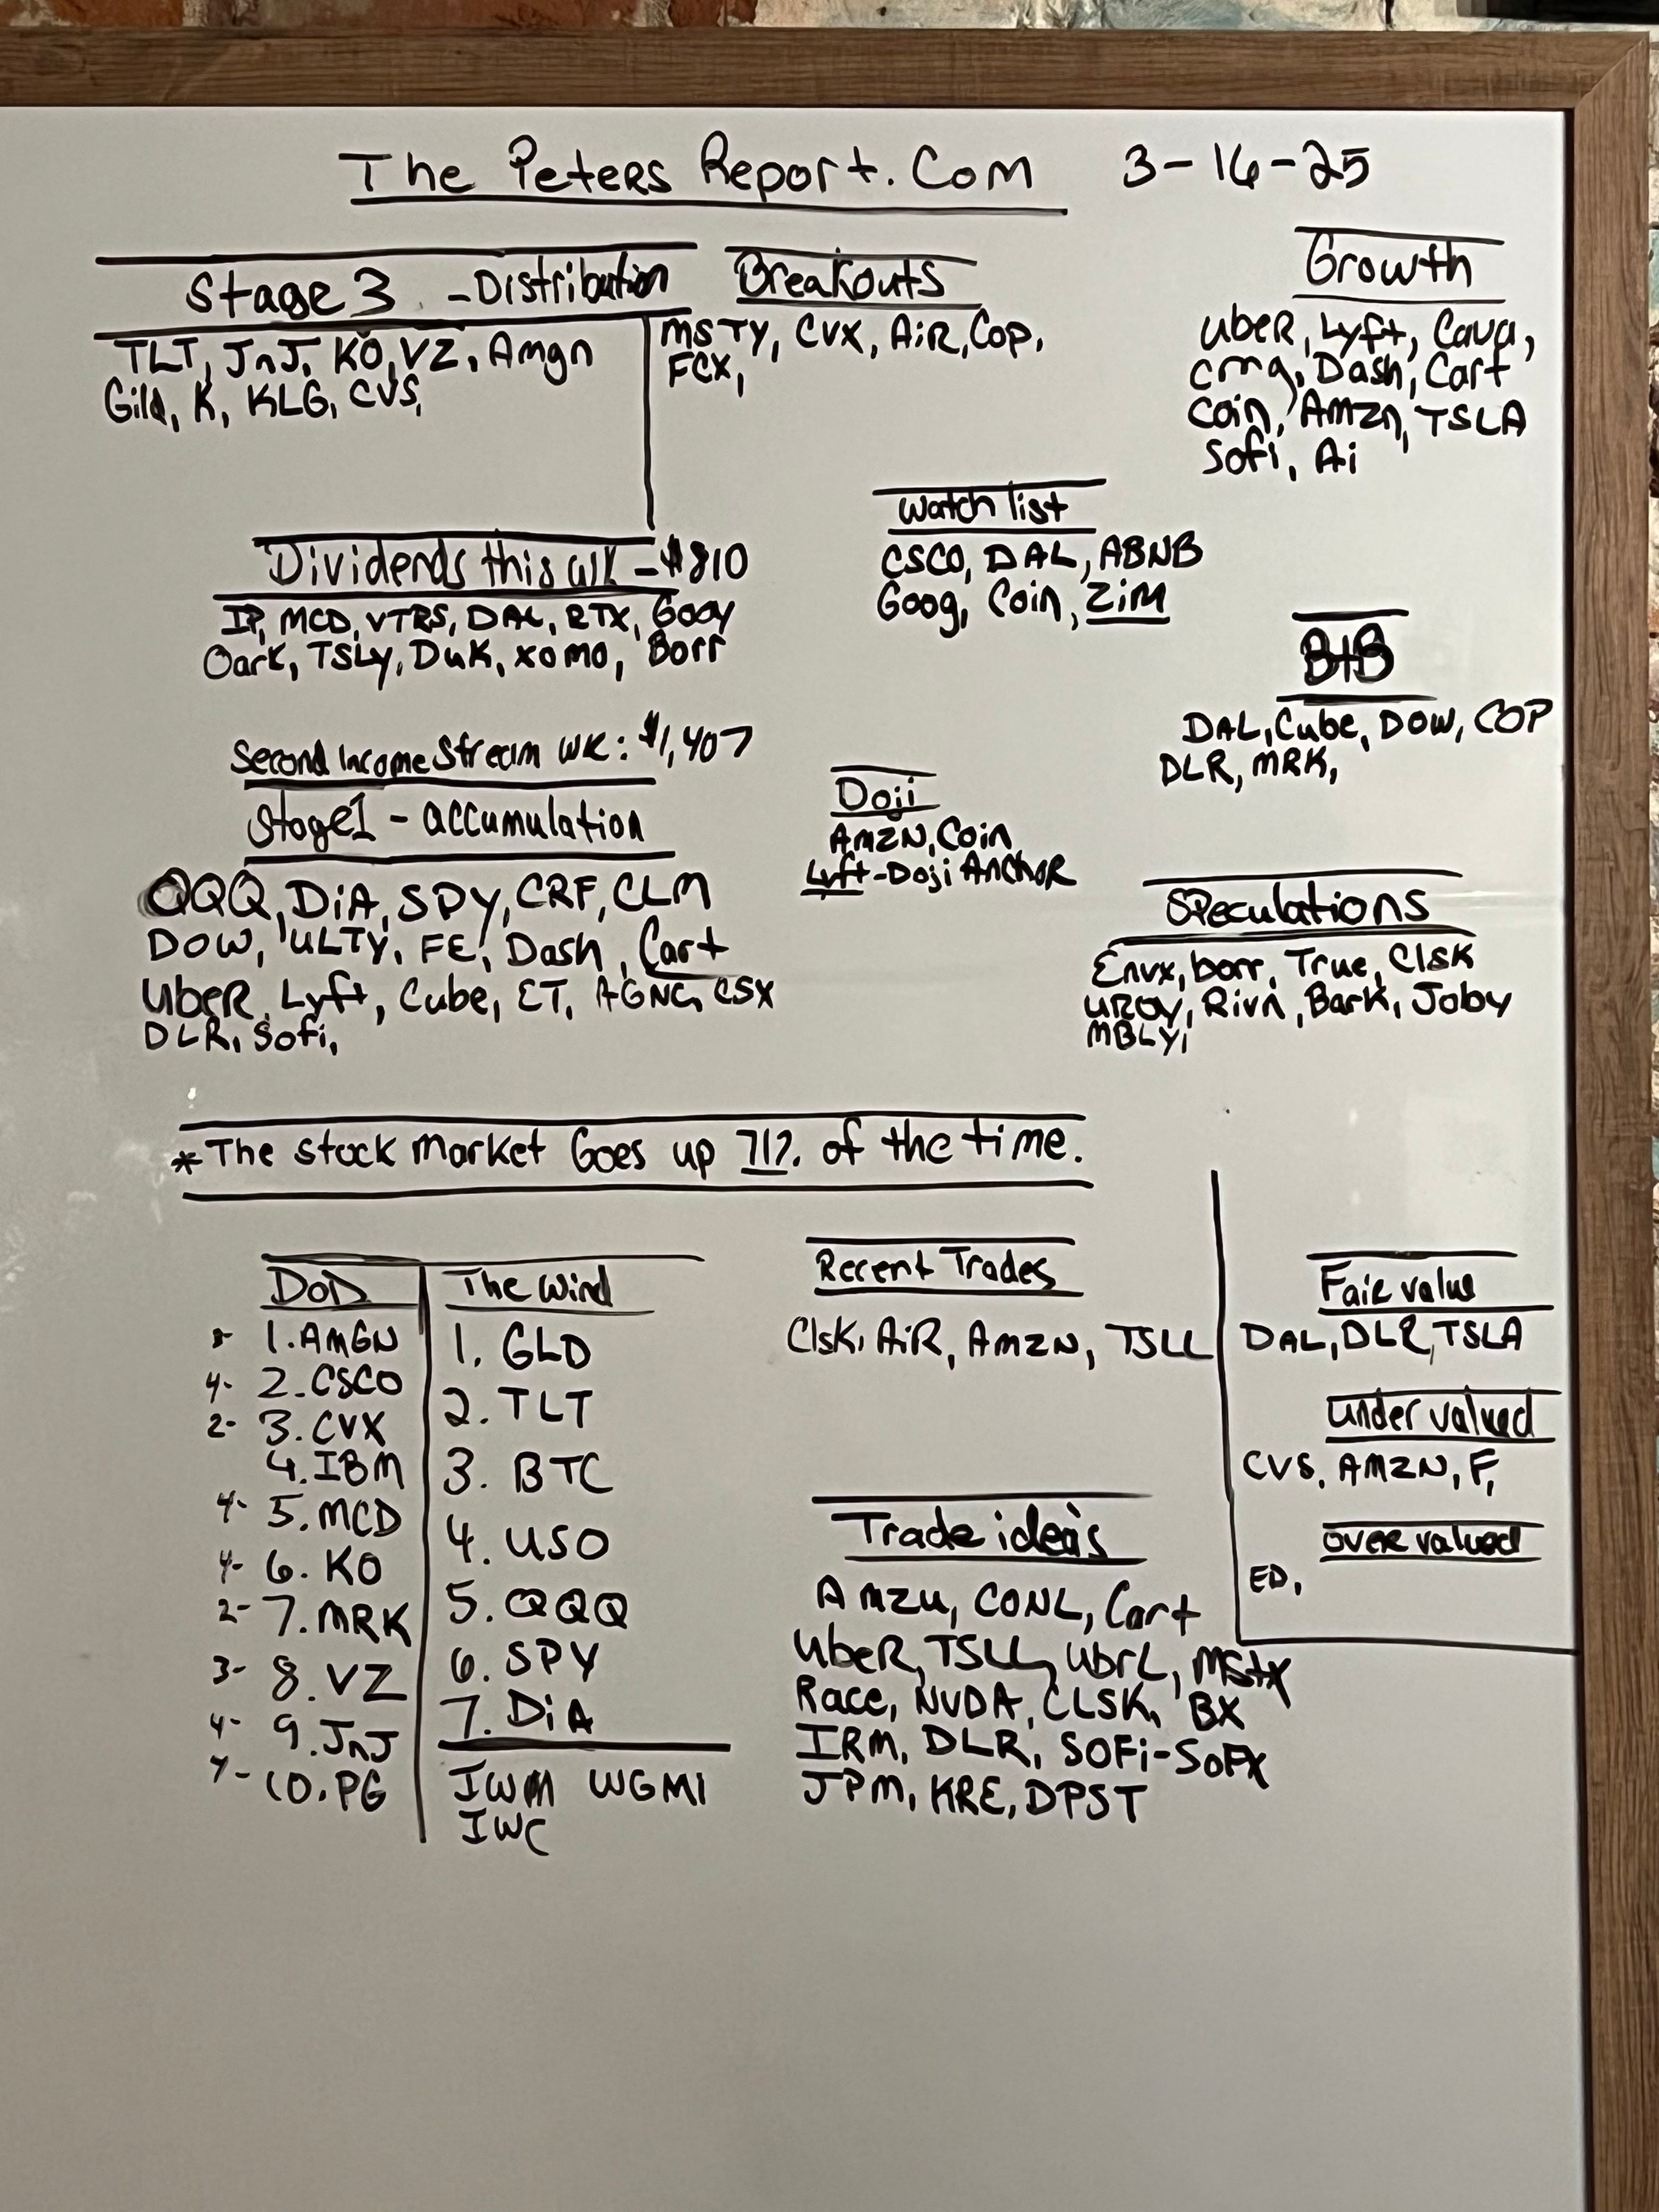 The Peters Report.Com 3-16-25
Stage 3 - Distribution
TLT, JnJ, KO, VZ, Amgn
Gild, K, KLG, CVS,
Breakouts
MSTY, CVX, AiR, Cop,
FCX,
Growth
UbeR, Lyft, Cava,
cmg, Dash, Cart
Coin, Amzn, TSLA
Sofi, Ai
Watch list
CSCO, DAL, ABNB
Goog, Coin, ZiM
Dividends this wk - $810
IP, MCD, VTRS, DAL, RTX, Gooy
Oark, TSLy, Duk, xomo, Borr
Second Income Stream WK: $1,407
B+B
DAL, Cube, DOW, COP
DLR, MRK,
Stage 1 - accumulation
QQQ, DiA, SPY, CRF, CLM
DOW, ULTY, FE, Dash, Cart
UbeR, Lyft, Cube, ET, AGNC, CSX
DLR, Sofi,
Doji
AMZN, Coin
Lyft-Doji AnchoR
Speculations
Envx, borr, True, Clsk
UROY, Rivn, Bark, Joby
MBLY,
*The stock market Goes up 71% of the time.
DoD
1. AmGN
4- 2. CSCO
2- 3. CVX
4. IBM
4- 5. MCD
4- 6. KO
2- 7. MRK
3- 8. VZ
4- 9. JnJ
10. PG
The Wind
1. GLD
2. TLT
3. BTC
4. USO
5. QQQ
6. SPY
7. DiA
IWM WGMI
IWC
Recent Trades
Clsk, AiR, AMZN, TSLL
Trade idea's
Amzu, CONL, Cart
UbeR, TSLL, UbrL, MSTX
Race, NVDA, CLSK, BX
IRM, DLR, SOFi-SoFX
JPM, KRE, DPST
FaiR value
DAL, DLR, TSLA
under valued
CVS, AMZN, F,
oveR valued
ED,